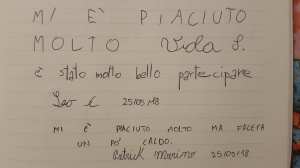 MI È PIACIUTO
MOLTO Viola S.
è stato molto bello partecipare
Leo C 25/05/18
MI È PIACIUTO MOLTO MA FACEVA
UN PO' CALDO.
Patrick Marino 25/05/18